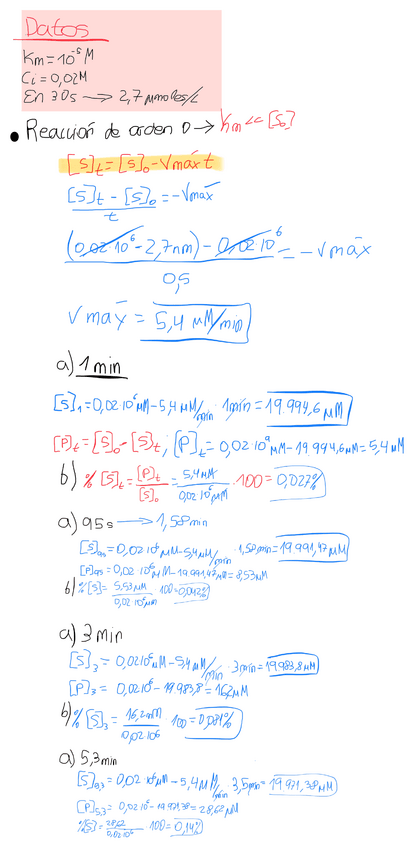 Datos
Km = 10⁻⁵ M
Ci = 0,02M
En 30s → 2,7 µmoles/L
• Reacción de orden 0 → Km << [S₀]
[S]t = [S]₀ - Vmáx t
[S]t - [S]₀ / t = - Vmáx
(0,02·10⁶ - 2,7nm) - 0,02·10⁶ / 0,5 = - Vmáx
Vmáx = 5,4 µM/min
a) 1 min
[S]₁ = 0,02·10⁶ µM - 5,4 µM/min · 1min = 19.994,6 µM
[P]t = [S]₀ - [S]t ; [P]t = 0,02·10⁶ µM - 19.994,6 µM = 5,4 µM
b) % [S]t = [P]t / [S]₀ = 5,4µM / 0,02·10⁶ µM · 100 = 0,027%
a) 95s → 1,58min
[S]₉₅ = 0,02·10⁶ µM - 5,4µM/min · 1,58min = 19.991,47µM
[P]₉₅ = 0,02·10⁶ µM - 19.991,47µM = 8,53µM
b) %[S] = 8,53µM / 0,02·10⁶µm · 100 = 0,042%
a) 3 min
[S]₃ = 0,02·10⁶µM - 5,4µM/min · 3min = 19.983,8µM
[P]₃ = 0,02·10⁶ - 19.983,8 = 16,2µM
b) % [S]₃ = 16,2µM / 0,02·10⁶ · 100 = 0,081%
a) 5,3min
[S]₅,₃ = 0,02·10⁶µM - 5,4µM/min · 3,5min = 19.971,38µM
[P]₅,₃ = 0,02·10⁶ - 19.971,38 = 28,62µM
%[S] = 28,62 / 0,02·10⁶ · 100 = 0,14%